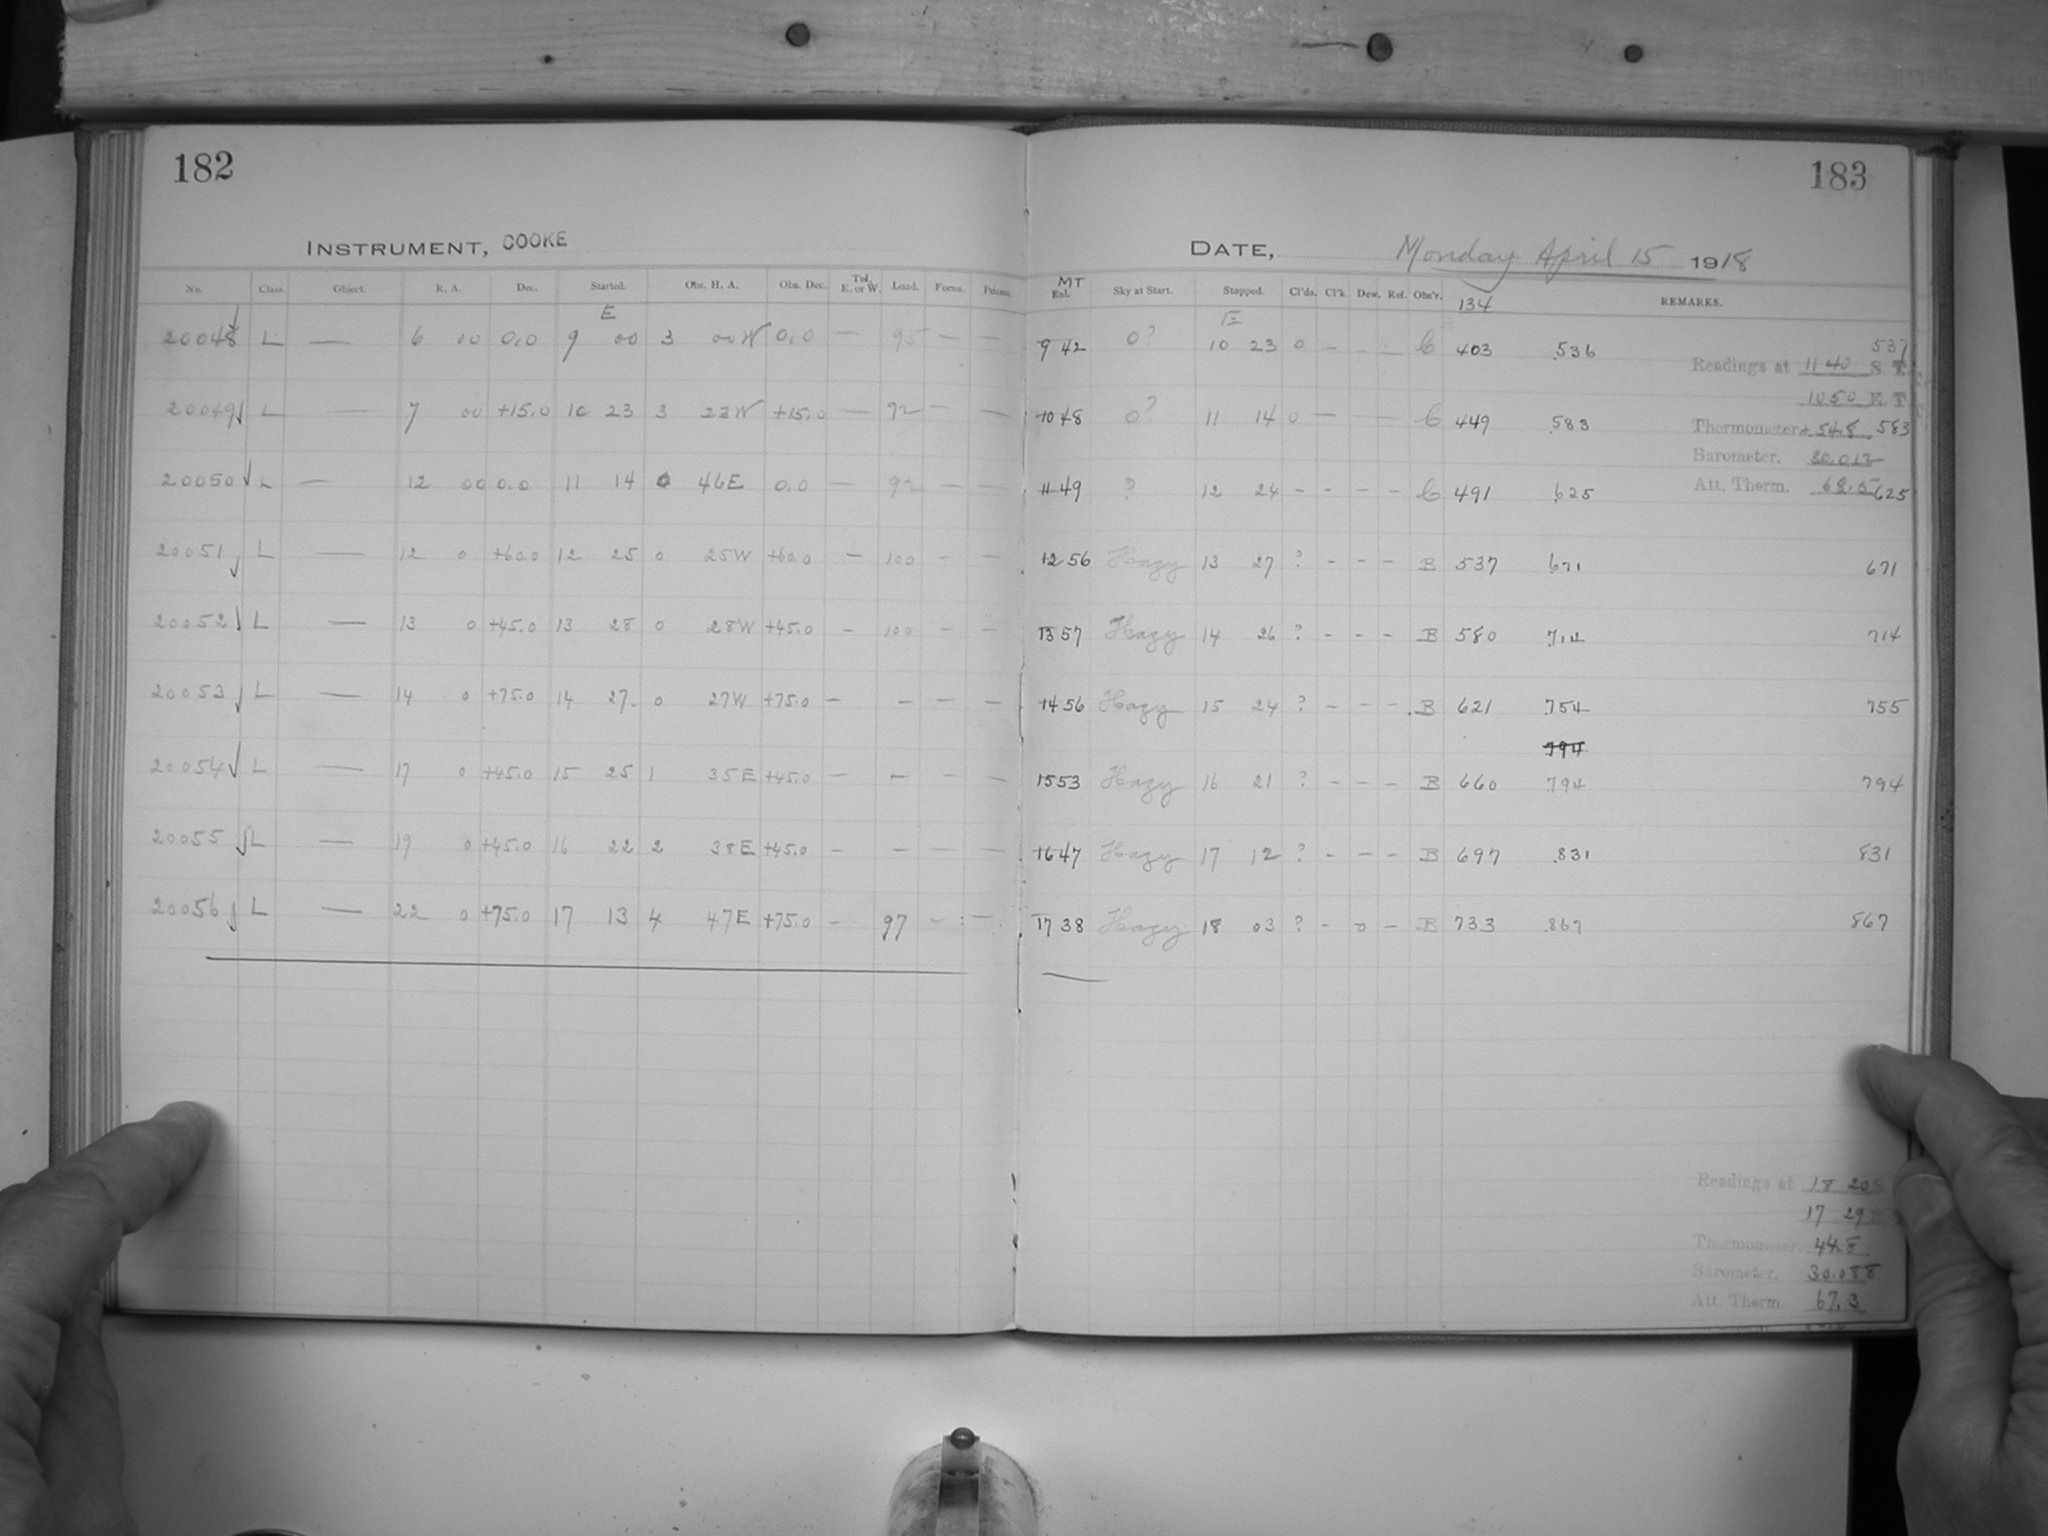 182
INSTRUMENT, COOKE
No. Class. Object. R. A. Dec. Started. Obs. H. A. Obs. Dec. Tel. E. or W. Load. Focus. Prisms.
E
20048 L — 6 00 0.0 9 00 3 00W 0.0 — 95 — —
20049 L — 7 00 +15.0 10 23 3 23W +15.0 — 92 — —
20050 L — 12 00 0.0 11 14 0 46E 0.0 — 92 — —
20051 L — 12 0 +60.0 12 25 0 25W +60.0 — 100 — —
20052 L — 13 0 +45.0 13 28 0 28W +45.0 — 100 — —
20053 L — 14 0 +75.0 14 27 0 27W +75.0 — — — —
20054 L — 17 0 +45.0 15 25 1 35E +45.0 — — — —
20055 L — 19 0 +45.0 16 22 2 38E +45.0 — — — —
20056 L — 22 0 +75.0 17 13 4 47E +75.0 — 97 — —
183
DATE, Monday April 15 1918
MT
Eal. Sky at Start. Stopped. Cl'ds. Cl'k. Dew. Ref. Obs'r. 134 REMARKS.
E
9 42 0? 10 23 0 – – C 403 .536 537
Readings at 11 40 S. T.
1050 E T
10 48 0? 11 14 0 — — — C 449 .583
Thermometer 54.8 583
Barometer. 30.012
11 49 ? 12 24 – – – – C 491 .625
Att. Therm. 68.5 625
12 56 Hazy 13 27 ? – – – B 537 .671 671
13 57 Hazy 14 26 ? – – – B 580 .714 714
14 56 Hazy 15 24 ? – – – B 621 .754 755
794
15 53 Hazy 16 21 ? – – – B 660 .794 794
16 47 Hazy 17 12 ? – – – B 697 .831 831
17 38 Hazy 18 03 ? – 0 – B 733 .867 867
Readings at 18 20 S
17 29
Thermometer. 44.8
Barometer. 30.088
Att. Therm. 67.3